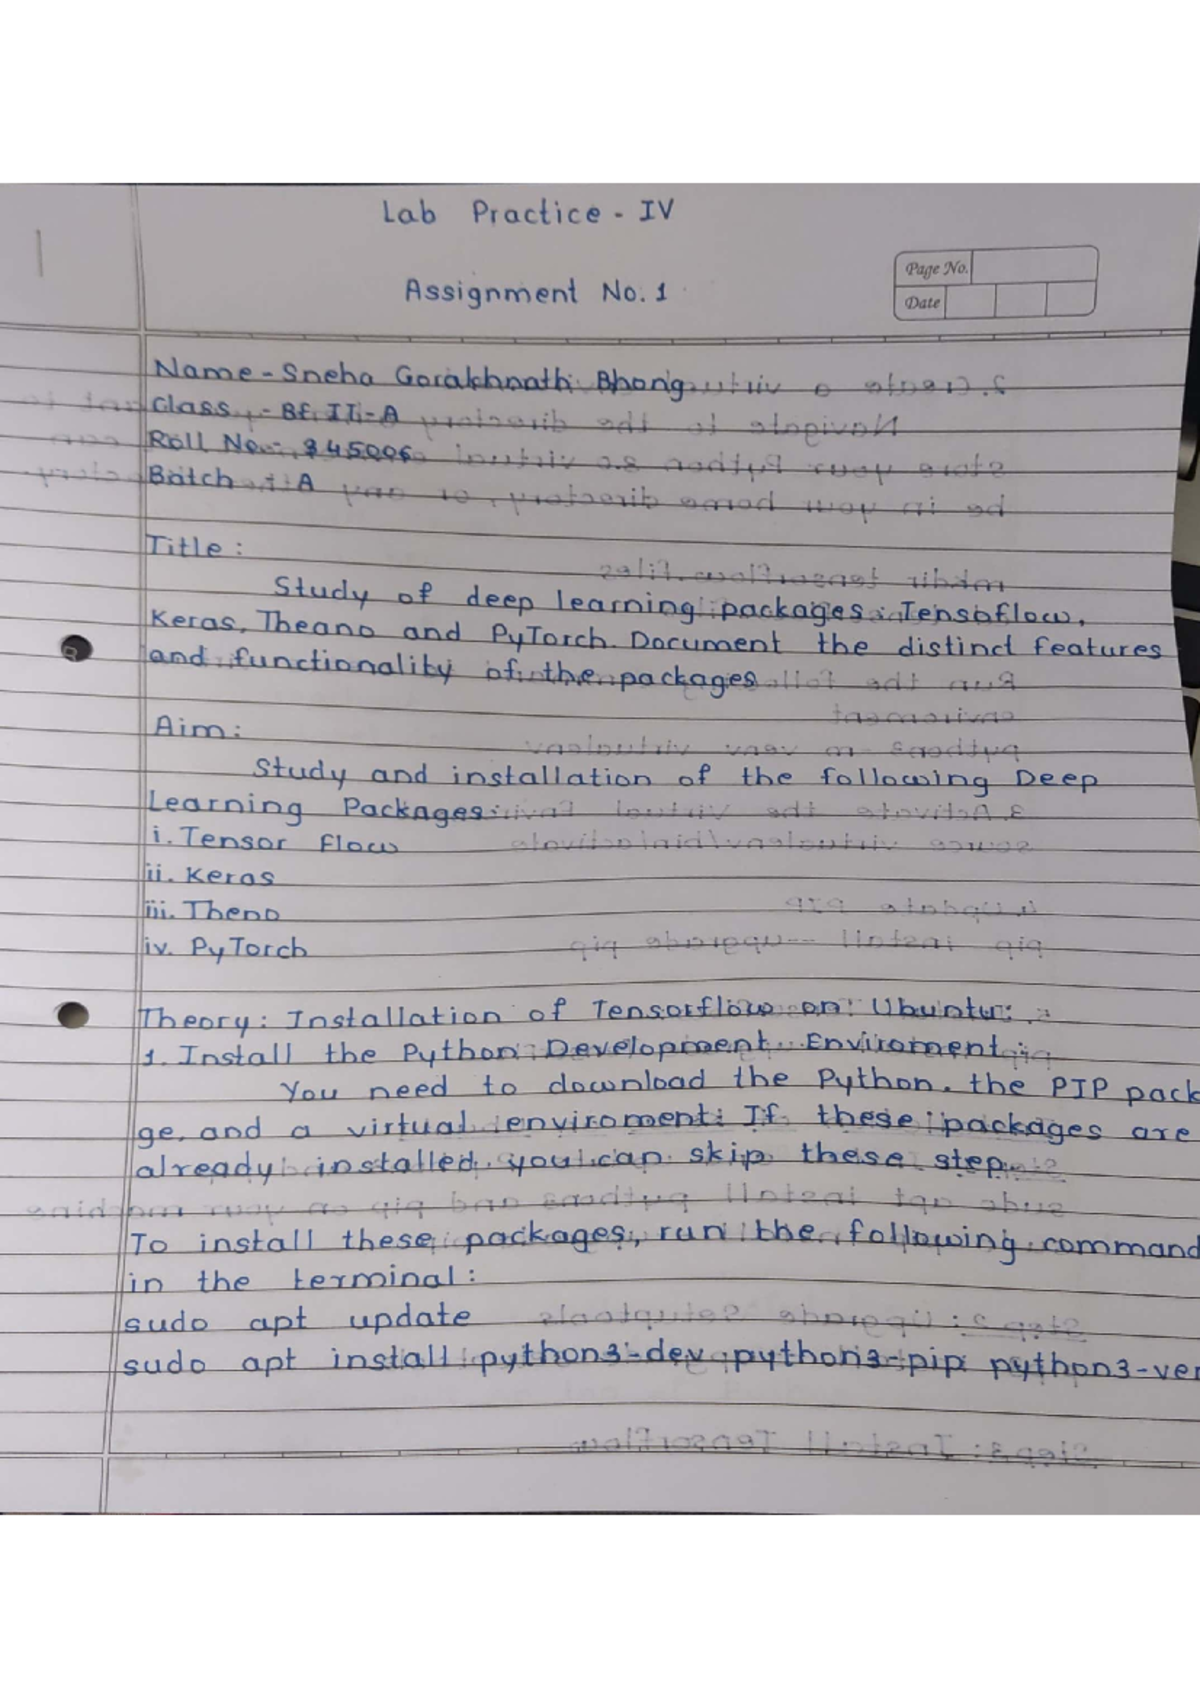 Lab Practice - IV
Page No.
Assignment No. 1
Date
Name - Sneha Gorakhnath Bhong
Class - BE II - A
Roll No - 45006
Batch : A
Title :
Study of deep learning packages : Tensoflow,
Keras, Theano and PyTorch. Document the distinct features
and functionality of the packages
Aim :
Study and installation of the following Deep
Learning Packages :
i. Tensor Flow
ii. Keras
iii. Theno
iv. PyTorch
Theory : Installation of Tensorflow on Ubuntu :
1. Install the Python Development Enviroment :
You need to download the Python, the PIP pack
ge, and a virtual enviroment. If these packages are
already installed, you can skip these step.
To install these packages, run the following command
in the terminal :
sudo apt update
sudo apt install python3-dev python3-pip python3-ve